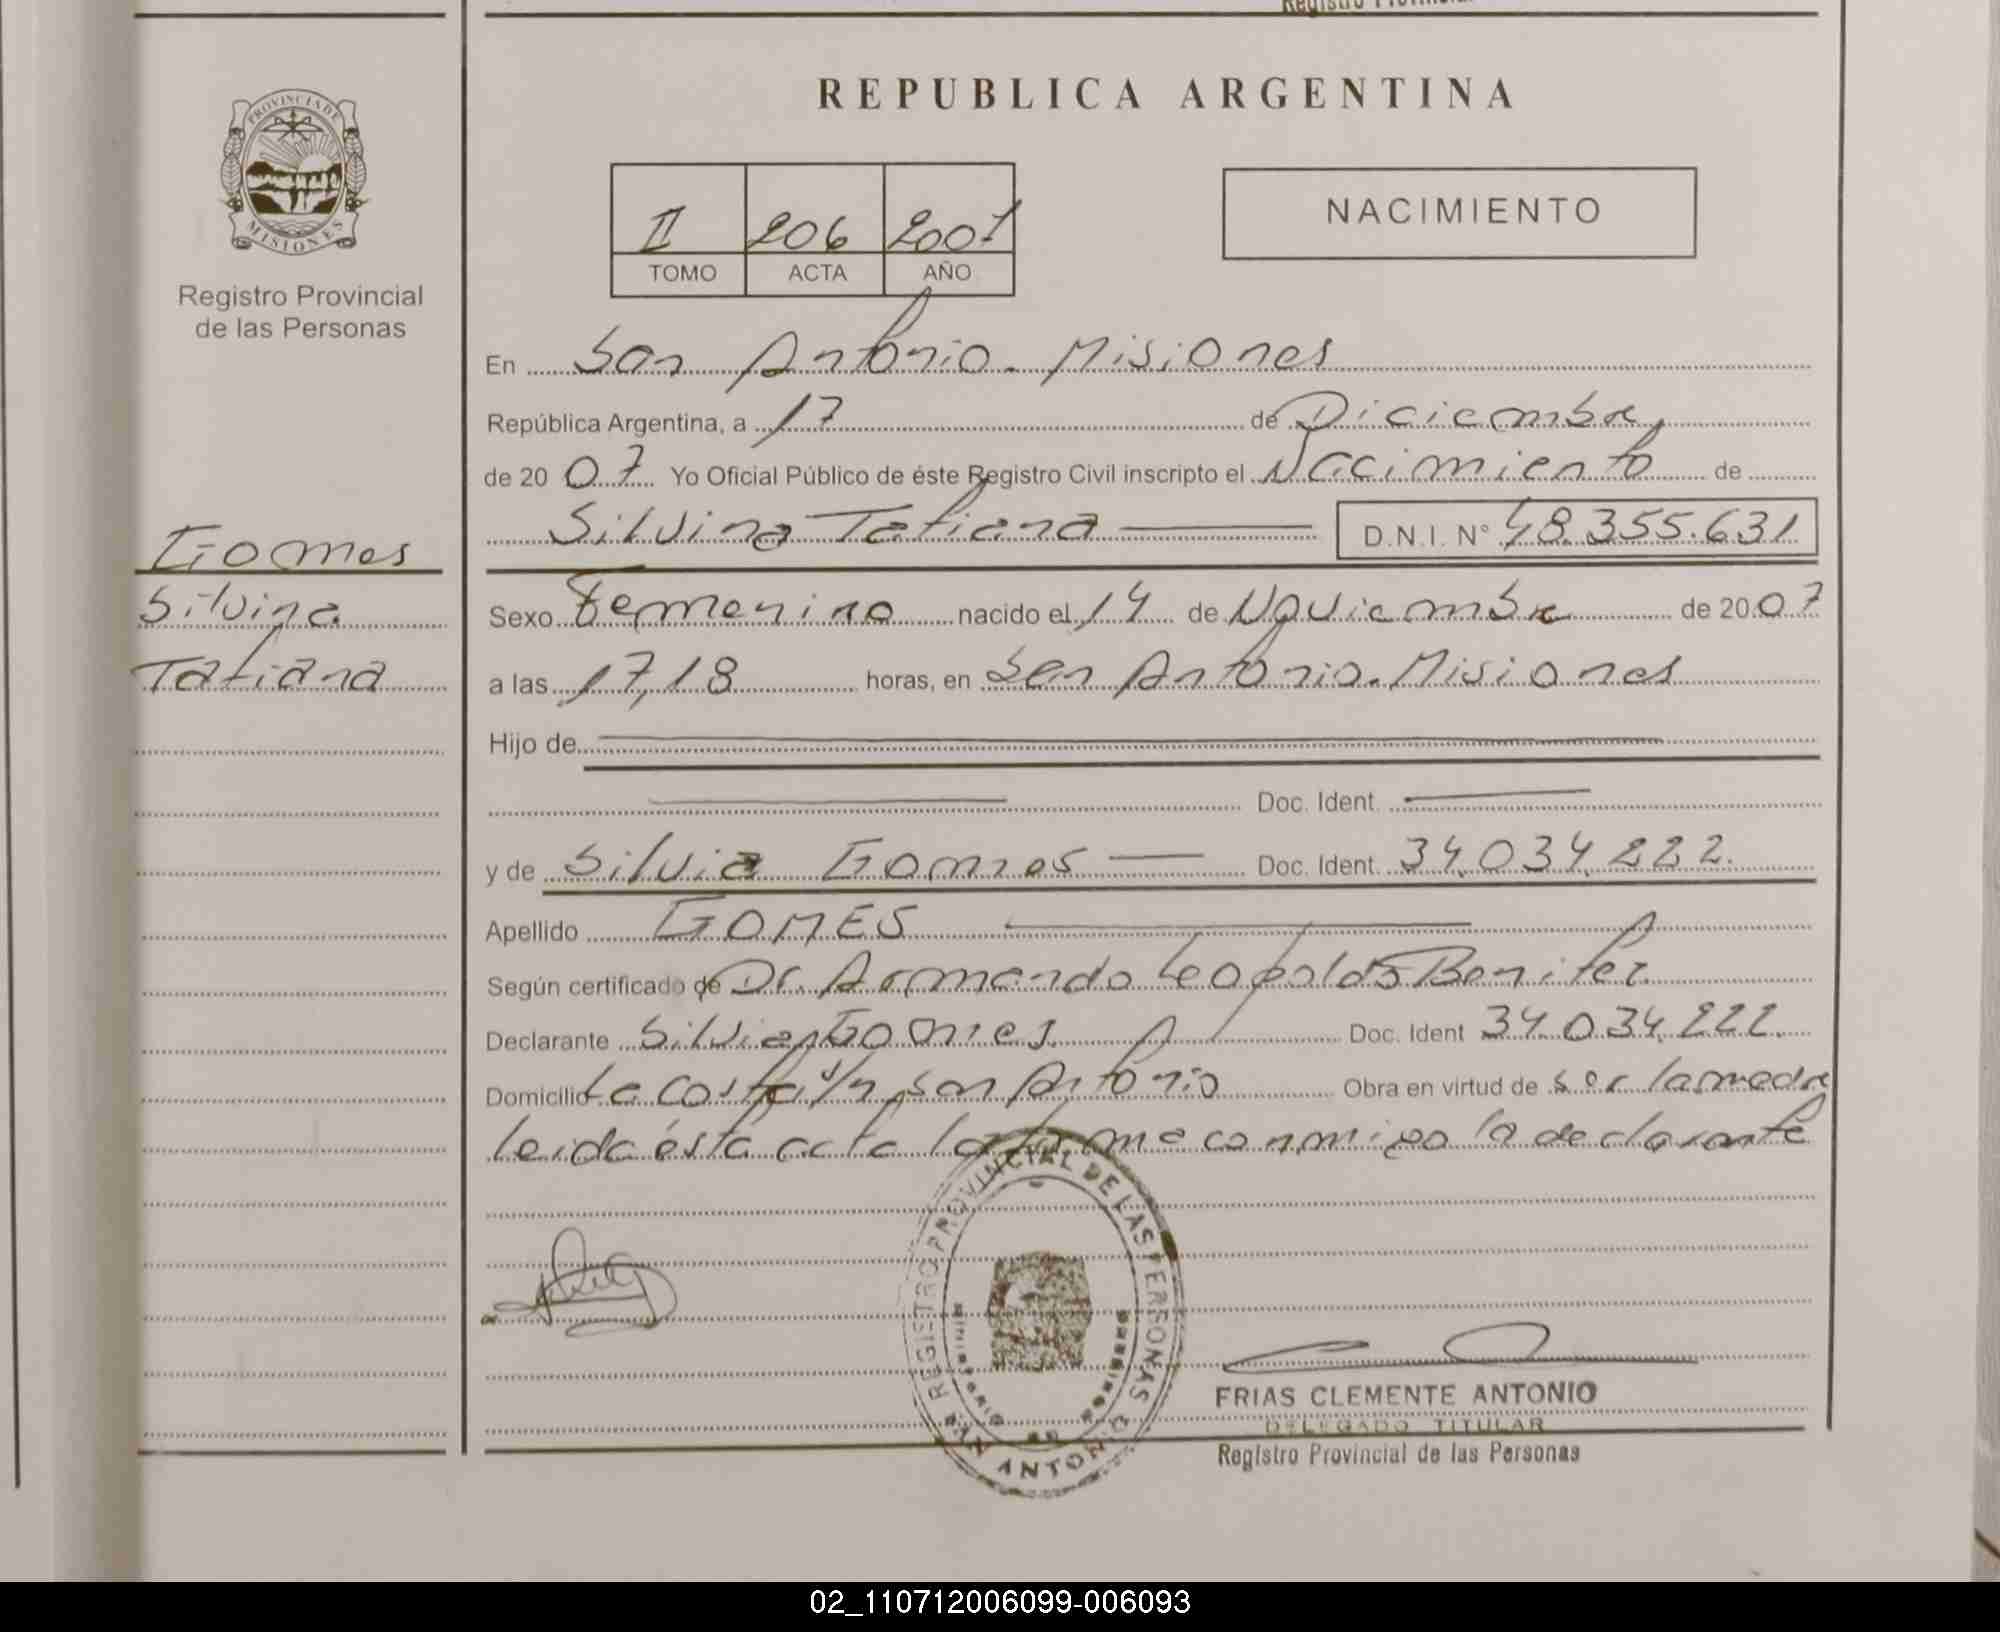 Registro Provincial
REPUBLICA ARGENTINA
PROVINCIA DE
MISIONES
Registro Provincial
de las Personas
II 206 2007
TOMO ACTA AÑO
NACIMIENTO
En San Antonio. Misiones
República Argentina, a 17 de Diciembre
de 20 07 Yo Oficial Público de éste Registro Civil inscripto el Nacimiento de
Silvina Tatiana D.N.I. N° 48.355.631
Gomes
Silvina
Tatiana
Sexo Femenino nacido el 14 de Noviembre de 20 07
a las 17,18 horas, en San Antonio. Misiones
Hijo de
Doc. Ident.
y de Silvia Gomes Doc. Ident. 34.034.222.
Apellido GOMES
Según certificado de Dr. Armando Leopoldo Benitez
Declarante Silvia Gomes. Doc. Ident 34.034.222.
Domicilio La Costa s/n San Antonio Obra en virtud de ser la madre
leida ésta acta la firma conmigo la declarante
REGISTRO PROVINCIAL DE LAS PERSONAS
SAN ANTONIO
FRIAS CLEMENTE ANTONIO
DELEGADO TITULAR
Registro Provincial de las Personas
02_110712006099-006093